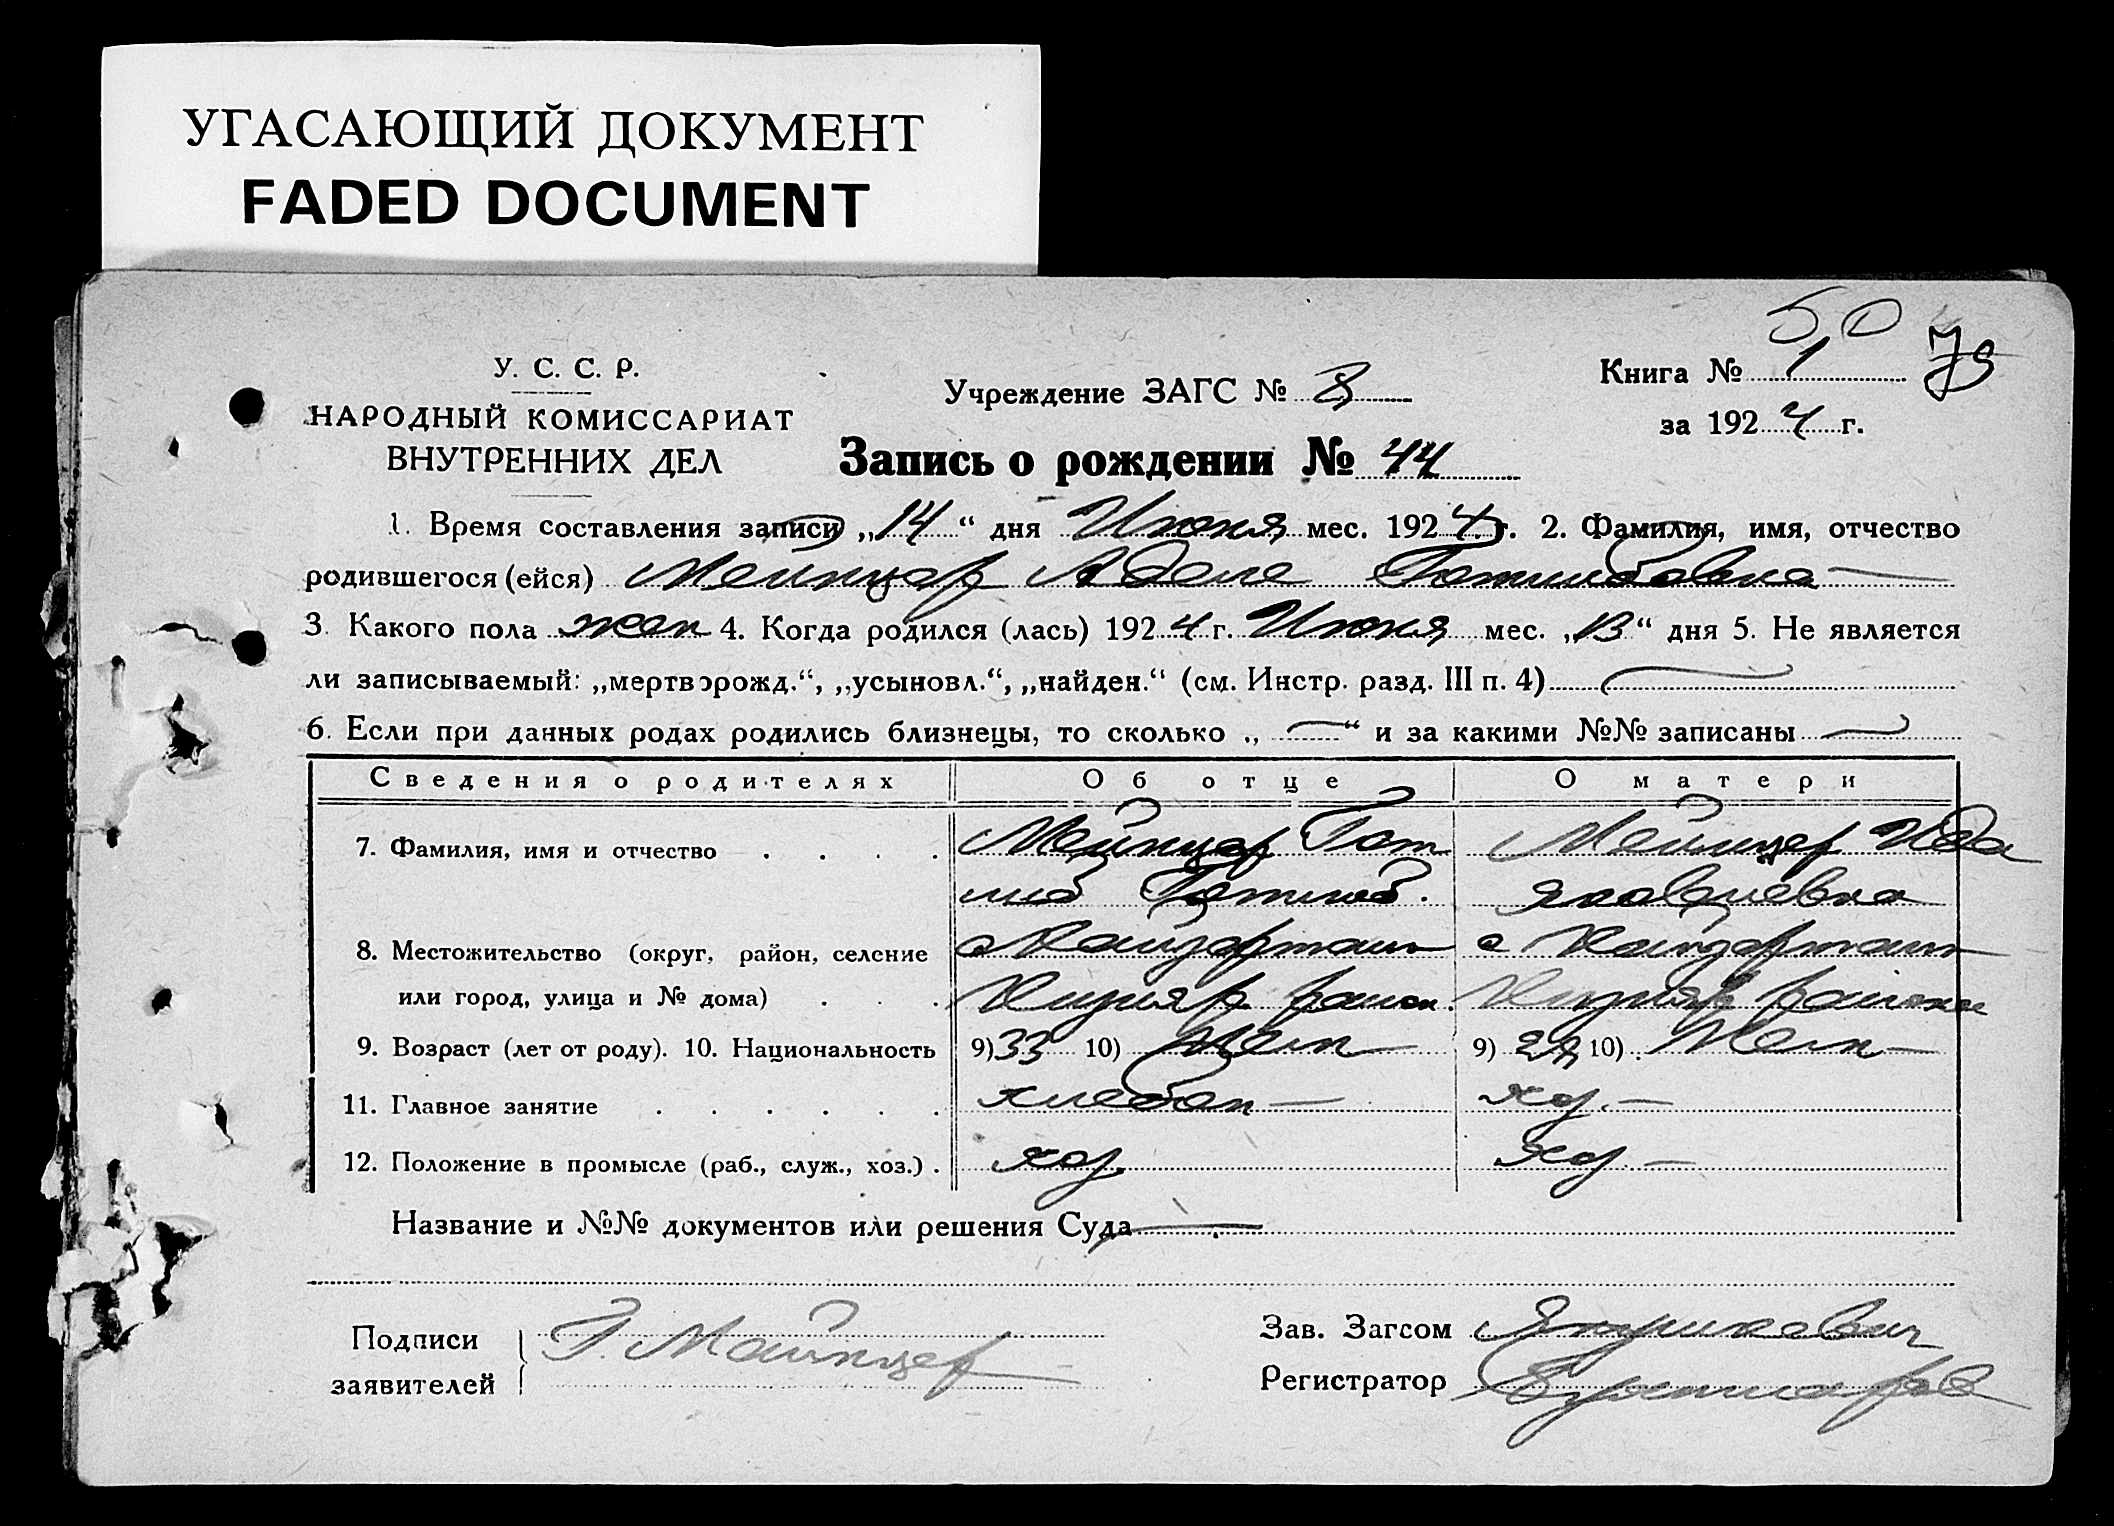 УГАСАЮЩИЙ ДОКУМЕНТ
FADED DOCUMENT
50
У. С. С. Р.
НАРОДНЫЙ КОМИССАРИАТ
ВНУТРЕННИХ ДЕЛ
Учреждение ЗАГС № 8
Книга № 1
за 1924 г.
Запись о рождении № 44
1. Время составления записи „14“ дня Июня мес. 1924 г. 2. Фамилия, имя, отчество
родившегося (ейся) Мейнцер Аделе Готлибовна
3. Какого пола жен 4. Когда родился (лась) 1924 г. Июня мес. „13“ дня 5. Не является
ли записываемый: „мертворожд.“, „усыновл.“, „найден.“ (см. Инстр. разд. III п. 4)
6. Если при данных родах родились близнецы, то сколько „ — “ и за какими №№ записаны —
Сведения о родителях Об отце О матери
7. Фамилия, имя и отчество . . . . Мейнцер Гот Мейнцер Ида
либ Готлиб. Яковлевна
8. Местожительство (округ, район, селение
или город, улица и № дома) . . . район. района
9. Возраст (лет от роду). 10. Национальность 9) 33 10) Нем — 9) 10) Нем —
11. Главное занятие . . . . . . хлебоп — хоз. —
12. Положение в промысле (раб., служ., хоз.) . хоз. хоз —
Название и №№ документов или решения Суда —
Подписи
заявителей
Г. Майнцер
Зав. Загсом
Регистратор